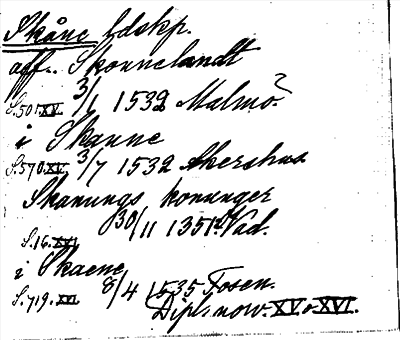 Skåne ldskp.
aff.. Skonnelandt
S.501.XV. 3/1 1532 Malmö?
i Skanne
S.570.XV. 3/7 1532 Akershus
Skanungs konunger
S.16.XVI. 30/11 1351. Vad.
i Skaene
S.719.XVI. 8/4 1535 Tosen.
Dipl. norv. XV o XVI.